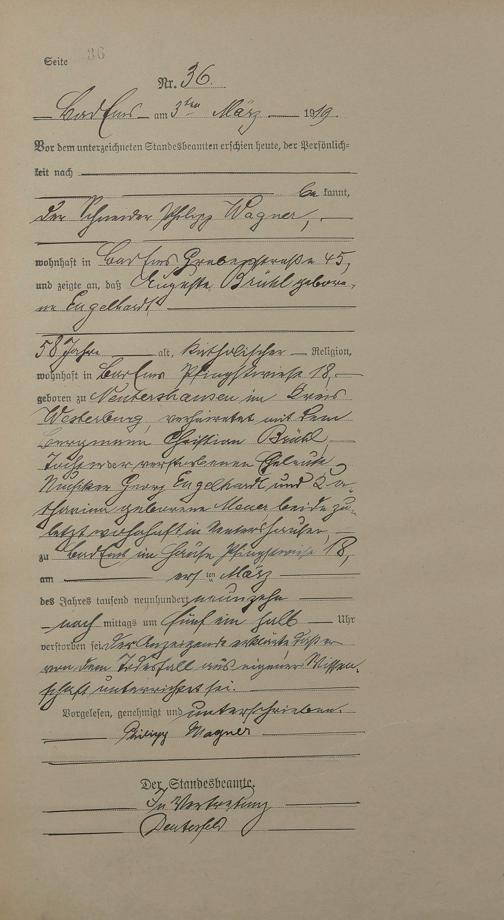 Seite 36
Nr. 36.
Bad Ems am 3ten März 1919.
Vor dem unterzeichneten Standesbeamten erschien heute, der Persönlich-
keit nach
be kannt,
der Schneider Philipp Wagner,
wohnhaft in Bad Ems Grabenstraße 45,
und zeigte an, daß Auguste Brühl gebore-
ne Engelhardt
58 Jahre alt, katholischer Religion,
wohnhaft in Bad Ems Pfingstwiese 18,
geboren zu Nentershausen im Kreis
Westerburg, verheiratet mit dem
Bergmann Christian Brühl,
Tochter der verstorbenen Eheleute
Musiker Georg Engelhardt und Ka-
tharina geborene beide zu-
letzt wohnhaft in Nentershausen,
zu Bad Ems im Hause Pfingstwiese 18,
am ersten März
des Jahres tausend neunhundert neunzehn
nach mittags um fünf ein halb Uhr
verstorben sei. Der Anzeigende erklärte, daß er
von dem Todesfall aus eigener Wissen-
schaft unterrichtet sei.
Vorgelesen, genehmigt und unterschrieben.
Philipp Wagner
Der Standesbeamte.
In Vertretung